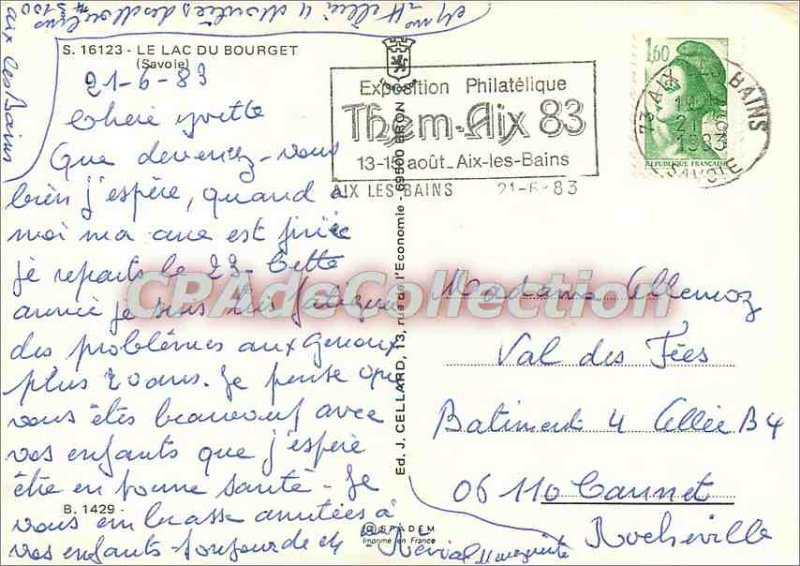 S. 16123 - LE LAC DU BOURGET
(Savoie)
21-6-83
Chère Yvette
Que devenez-vous
bien j'espère, quand à
moi ma cure est finie
je reparts le 23. Cette
année je suis très fatiguée
des problèmes aux genoux
plus 20 ans. Je pense que
vous êtes beaucoup avec
vos enfants que j'espère
être en bonne santé - Je
vous embrasse amitiés à
vos enfants - toujours de
Marguerite
aux les Bains
73100
B. 1429 -
Ed. J. CELLARD, 13, rue de l'Economie - 69500 BRON
® SPADEM
Imprimé en France
Exposition Philatélique
Them-Aix 83
13-15 août_Aix-les-Bains
AIX LES BAINS 21-6-83
1,60
REPUBLIQUE FRANÇAISE
73 AIX LES BAINS
21-6
1983
SAVOIE
Madame Allemoz
Val des Fées
Batiment 4 Allée B4
06110 Cannet
Rocheville
CPAdeCollection.com